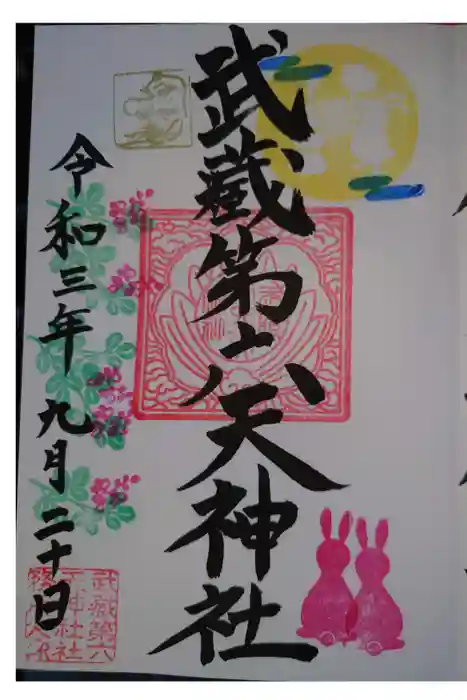 武蔵第六天神社
令和三年九月二十日
武蔵第六
天神社社
務之印